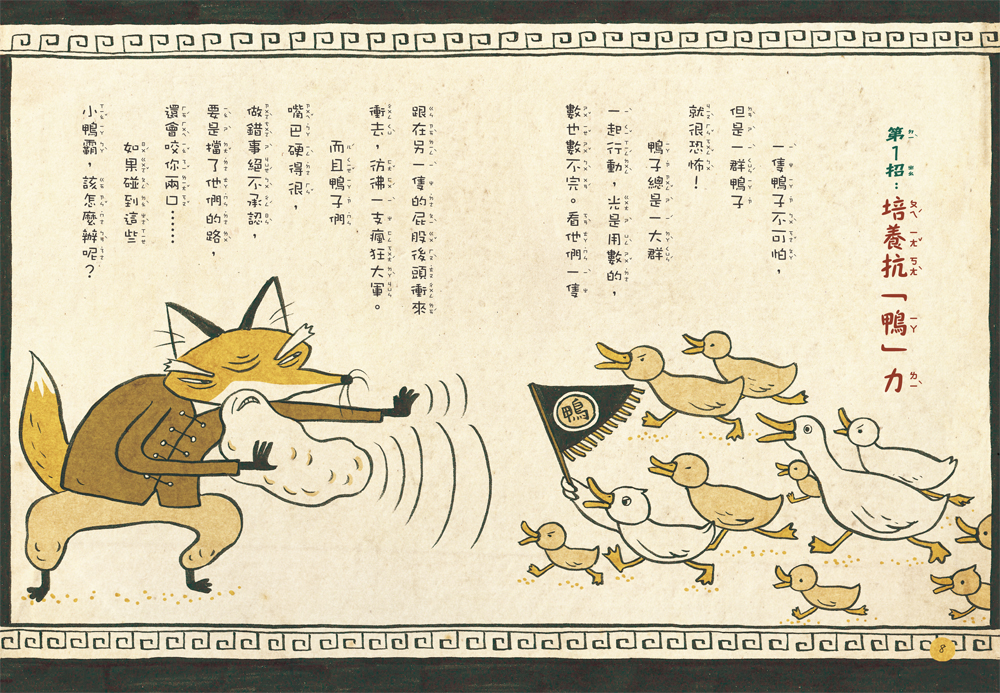 第1招：培養抗「鴨」力
一隻鴨子不可怕，
但是一群鴨子
就很恐怖！
鴨子總是一大群
一起行動，光是用數的，
數也數不完。看他們一隻
跟在另一隻的屁股後頭衝來
衝去，彷彿一支瘋狂大軍。
而且鴨子們
嘴巴硬得很，
做錯事絕不承認，
要是擋了他們的路，
還會咬你兩口……
如果碰到這些
小鴨霸，該怎麼辦呢？
鴨
8